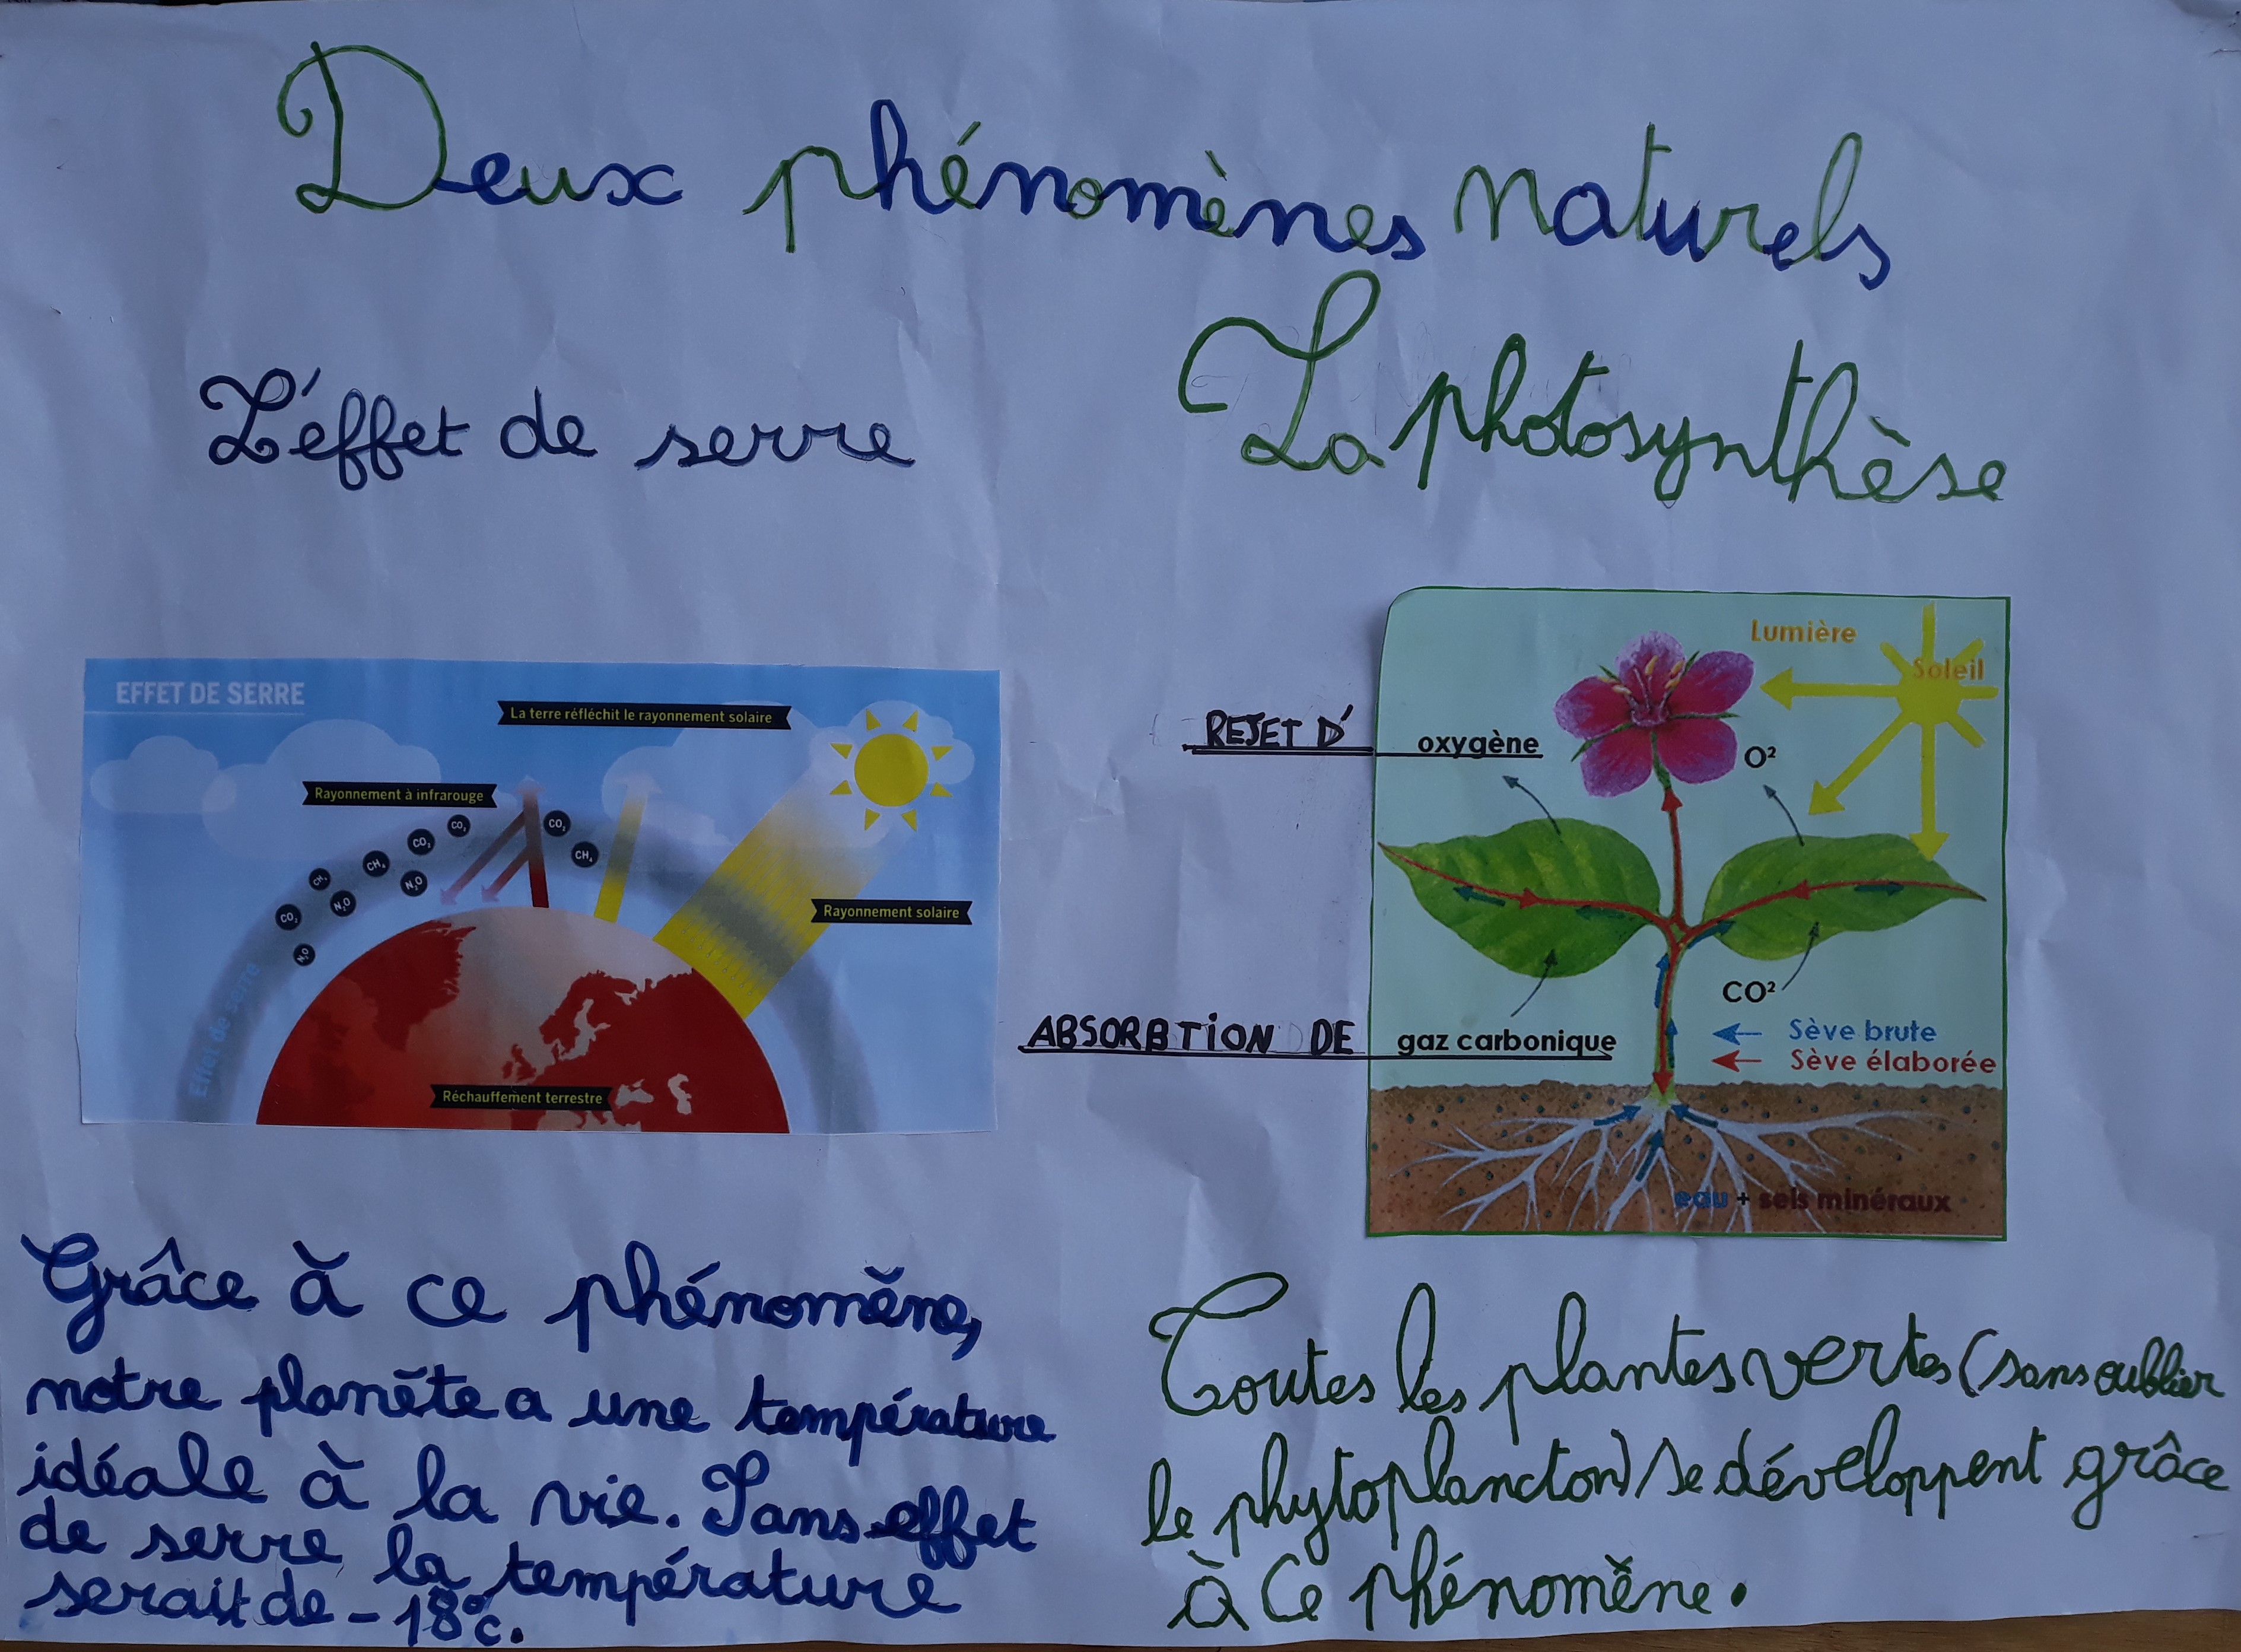 Deux phénomènes naturels
L'effet de serre
La photosynthèse
EFFET DE SERRE
La terre réfléchit le rayonnement solaire
Rayonnement à infrarouge
CO₂
CO₂
CO₂
CH₄
CH₄
CH₄
N₂O
N₂O
CO₂
N₂O
Rayonnement solaire
Effet de serre
Réchauffement terrestre
Lumière
Soleil
REJET D' oxygène
O²
CO²
ABSORBTION DE gaz carbonique
Sève brute
Sève élaborée
eau + sels minéraux
Grâce à ce phénomène,
notre planète a une température
idéale à la vie. Sans effet
de serre la température
serait de -18°c.
Toutes les plantes vertes (sans oublier
le phytoplancton) se développent grâce
à ce phénomène.